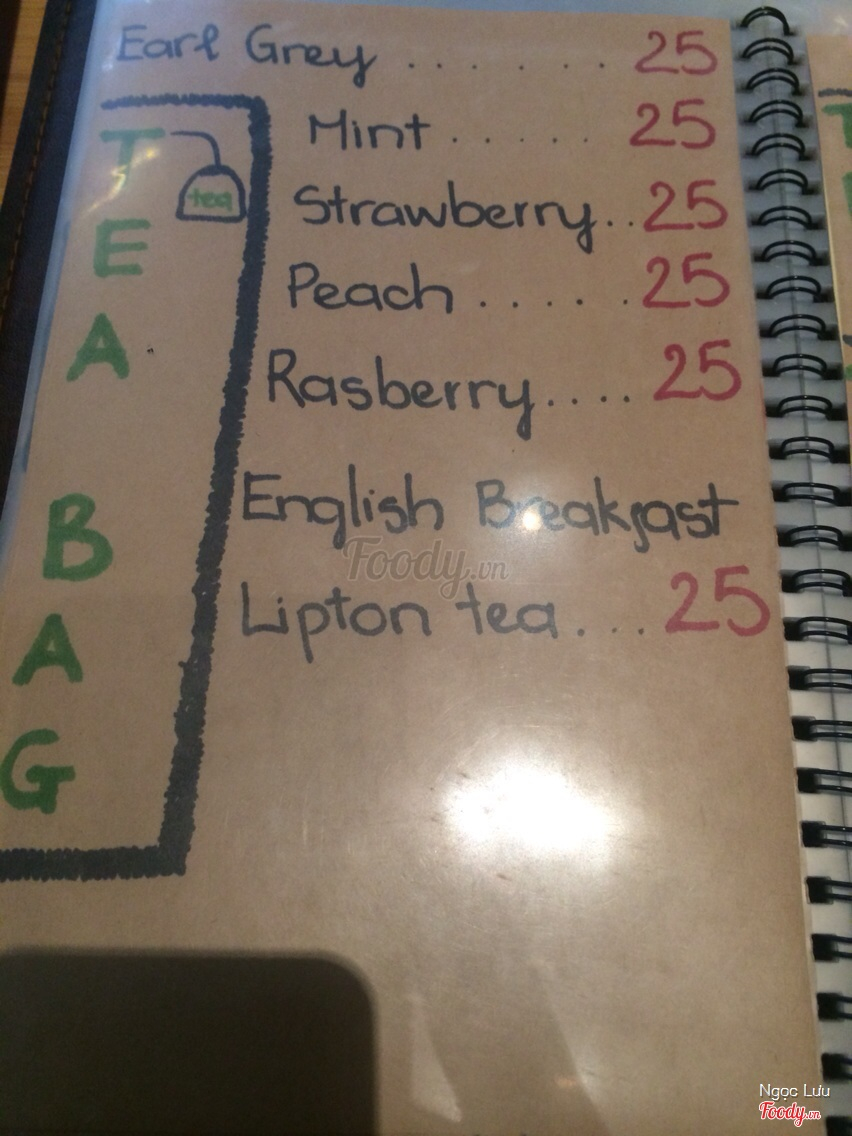 Earl Grey ....... 25
TEA BAG
tea
Mint ..... 25
Strawberry.. 25
Peach ..... 25
Rasberry.... 25
English Breakfast
Lipton tea... 25
Foody.vn
Ngọc Lưu
Foody.vn